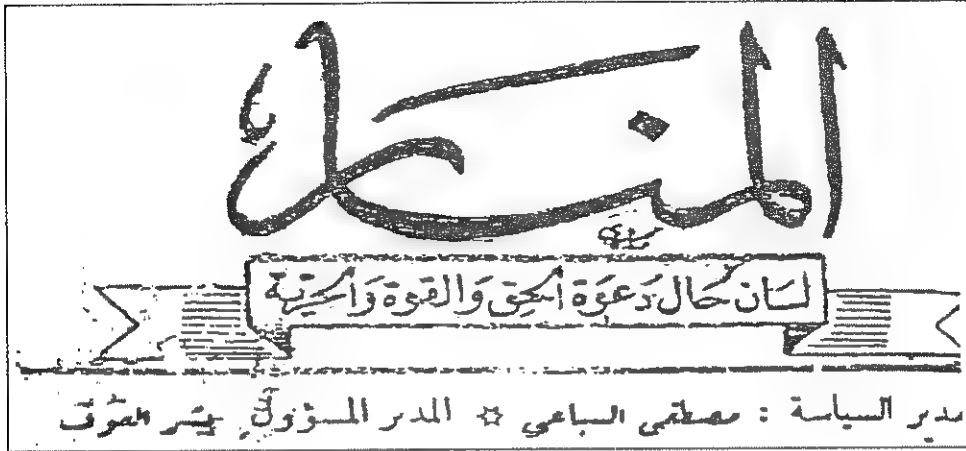 المنار
لسَان حَال دَعوَة الحِق وَالقوة وَالحرّية
مدير السياسة : مصطفى السباعي ☆ المدير المسؤول بشير العوف